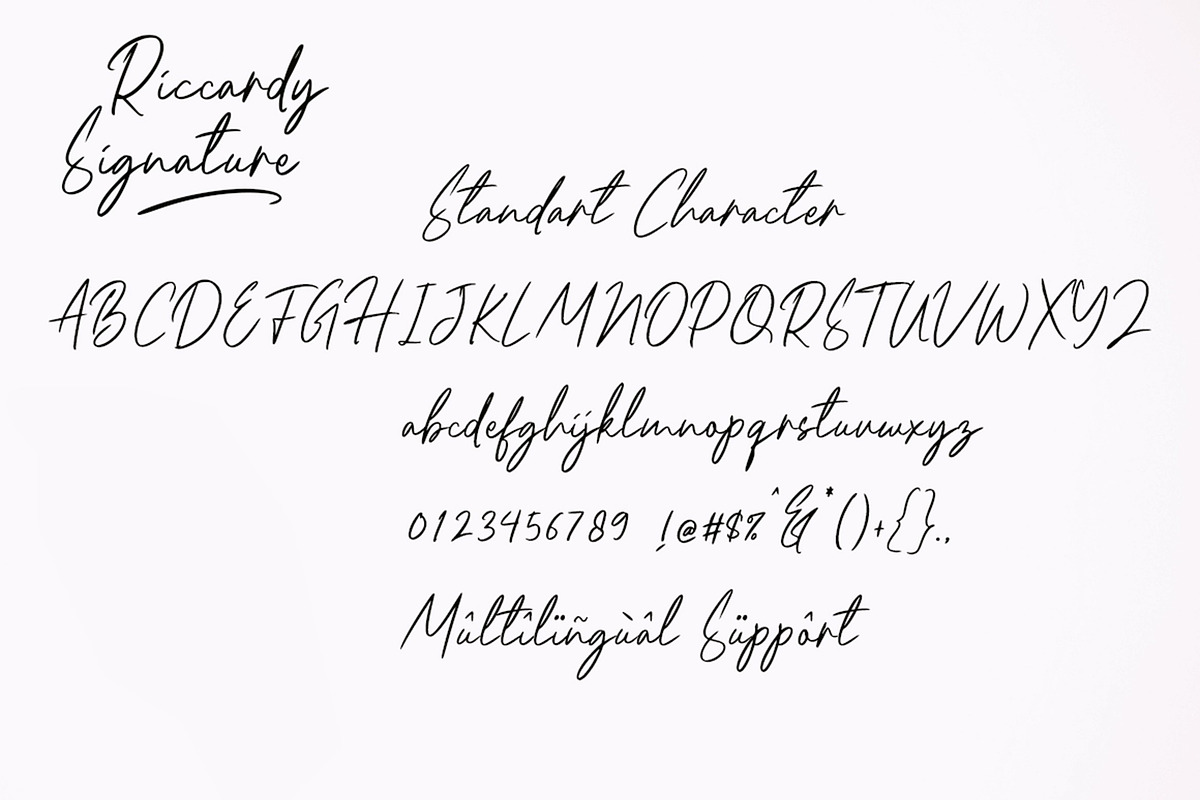 Riccardy
Signature
Standart Character
ABCDEFGHIJKLMNOPQRSTUVWXYZ
abcdefghijklmnopqrstuvwxyz
0123456789 !@#$%^&*()+{}.,
Mûltîlïñgùâl Süppôrt